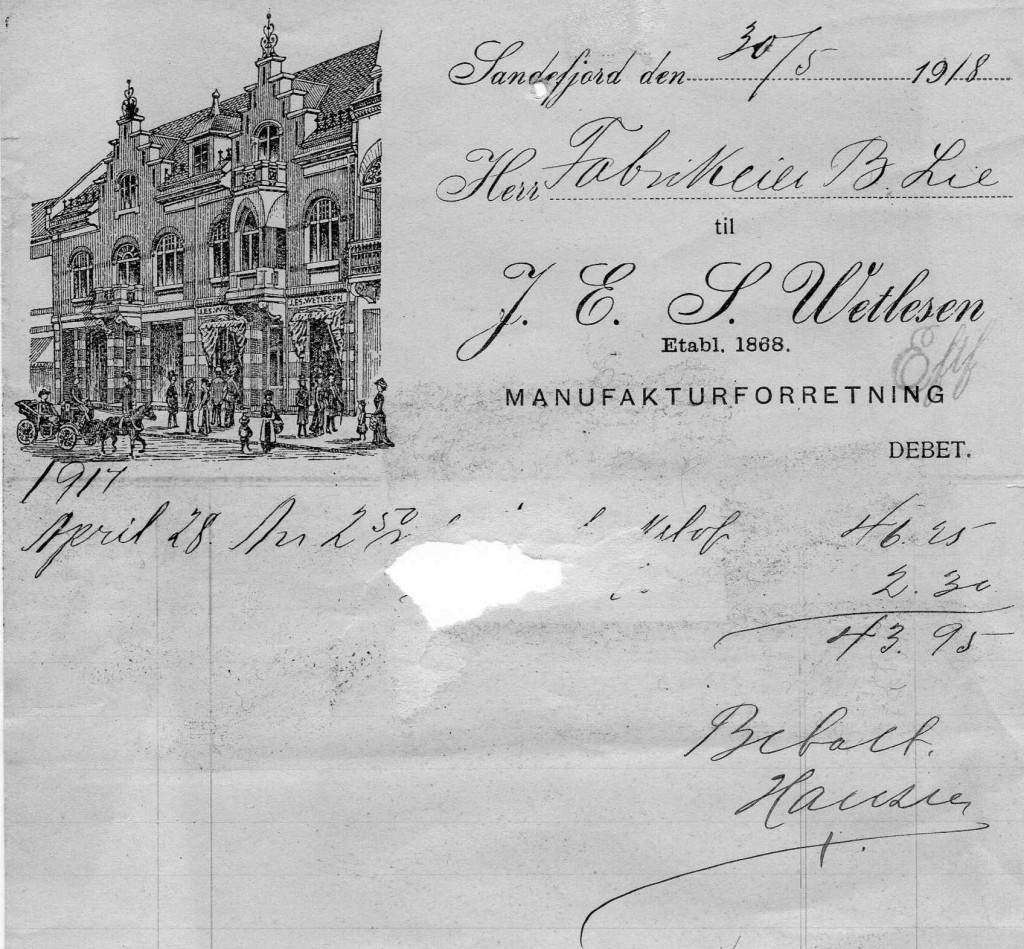 Sandefjord den 30/5 1918
Herr Fabrikeier B. Lie
til
J. E. S. Wetlesen
Eftf
Etabl. 1868.
MANUFAKTURFORRETNING
DEBET.
J.E.S. WETLESEN
1917
April 28 An 2 50 46.25
2.30
43.95
Betalt.
Hansen